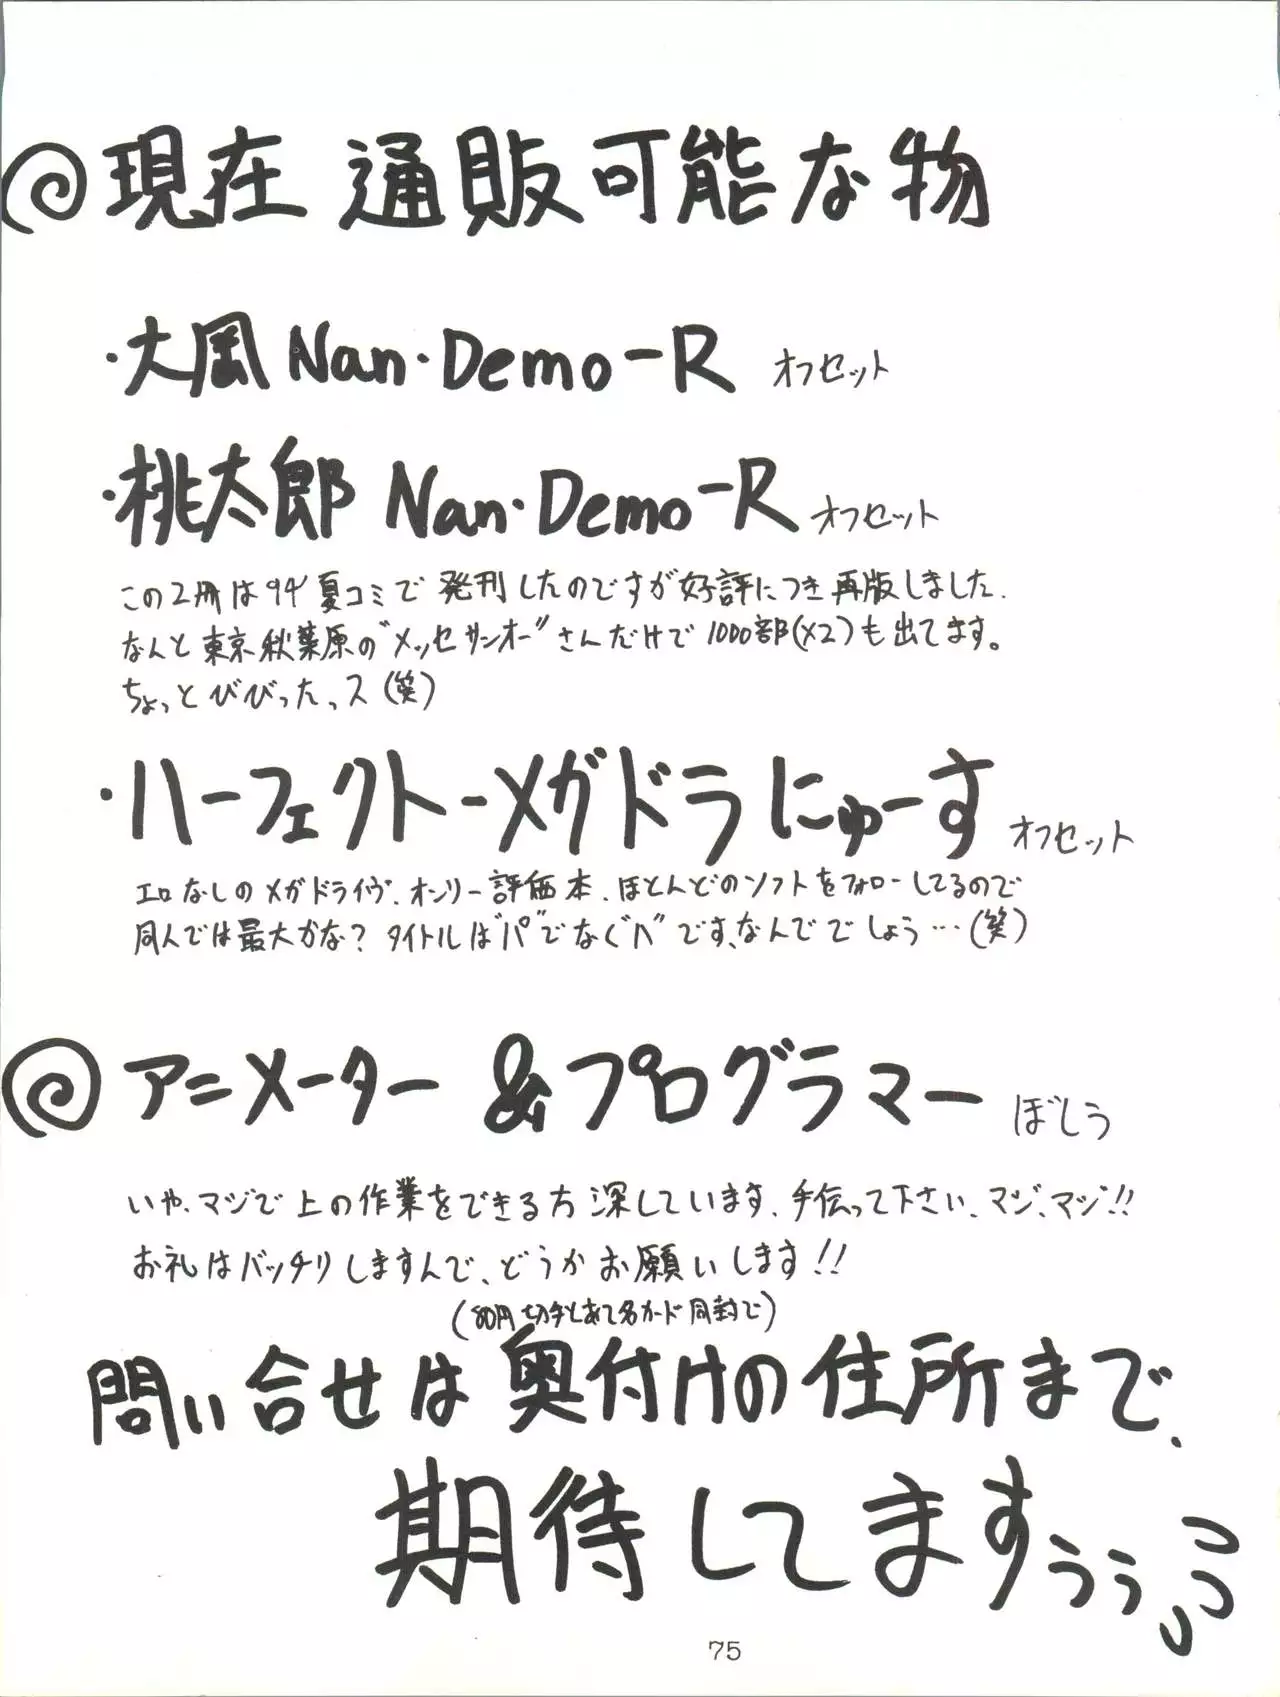 現在 通販可能な物
・大風 Nan・Demo-R オフセット
・桃太郎 Nan・Demo-R オフセット
この2冊は94'夏コミで発刊したのですが好評につき再版しました.
なんと東京秋葉原の"メッセサンオー"さんだけで1000部(×2)も出てます。
ちょっとびびったっス(笑)
・ハーフェクトーメガドラにゅーす オフセット
エロなしのメガドライヴ.オンリー評価本、ほとんどのソフトをフォローしてるので
同人では最大かな? タイトルは"パ"でなく"ハ"です、なんででしょう…(笑)
アニメーター &プログラマー ぼしう
いや、マジで上の作業をできる方深しています、手伝って下さい、マジ、マジ!!
お礼はバッチリしますんで、どうかお願いします!!
(80円切手とあて名カード同封で)
問い合せは奥付けの住所まで.
期待してますぅぅぅぅぅ
75